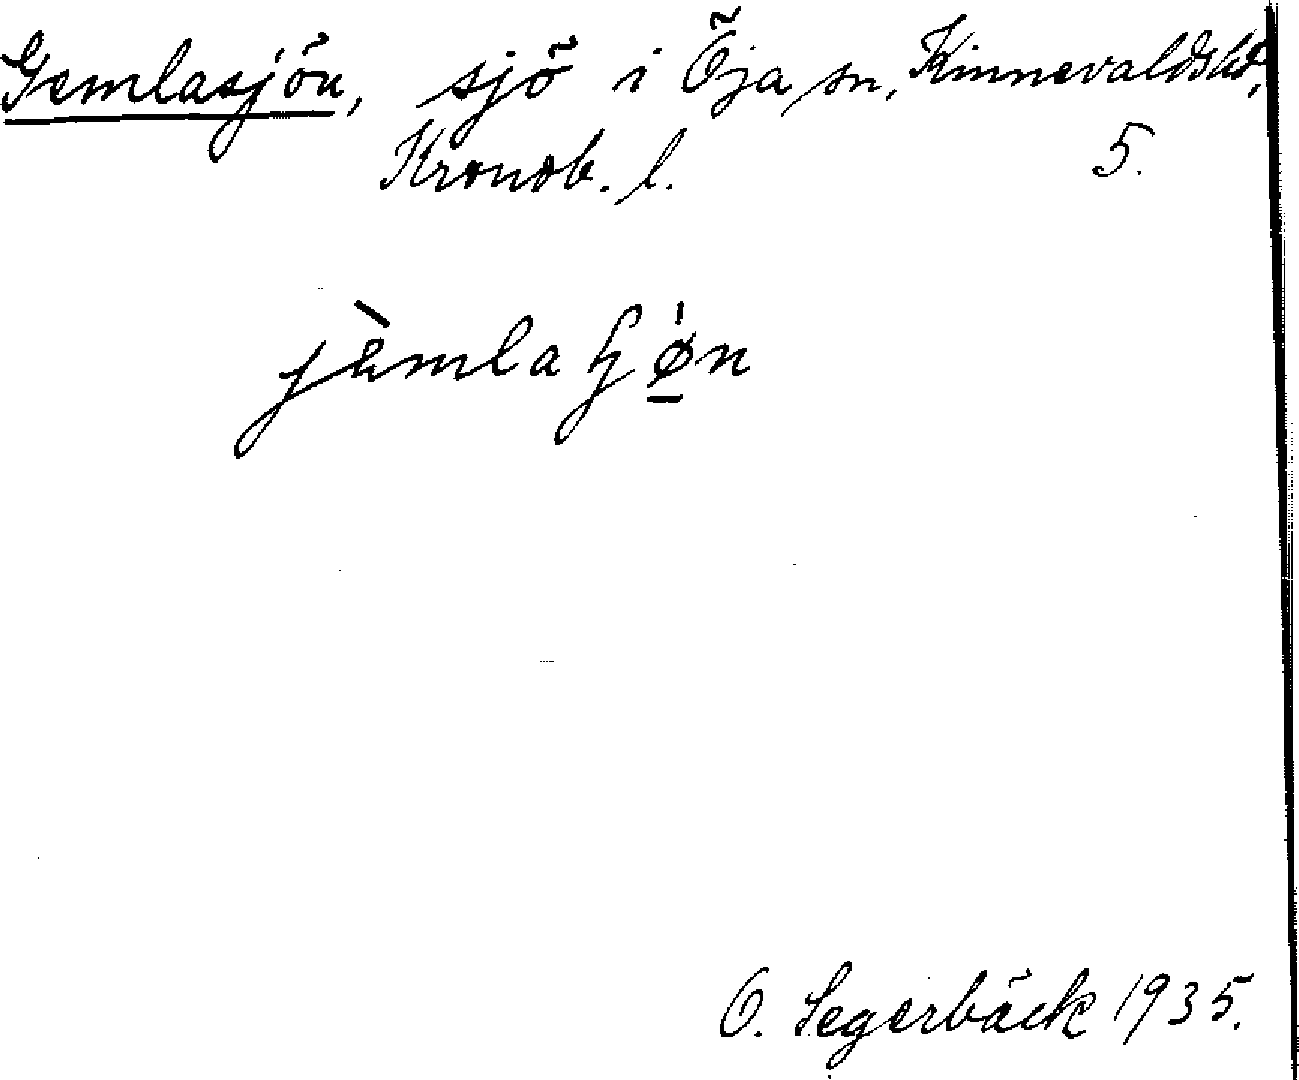 Gemlasjön, sjö i Öja sn, Kinnevalds hd,
Kronob. l. 5.
jèmlaɧø̱n
O. Segerbäck 1935.